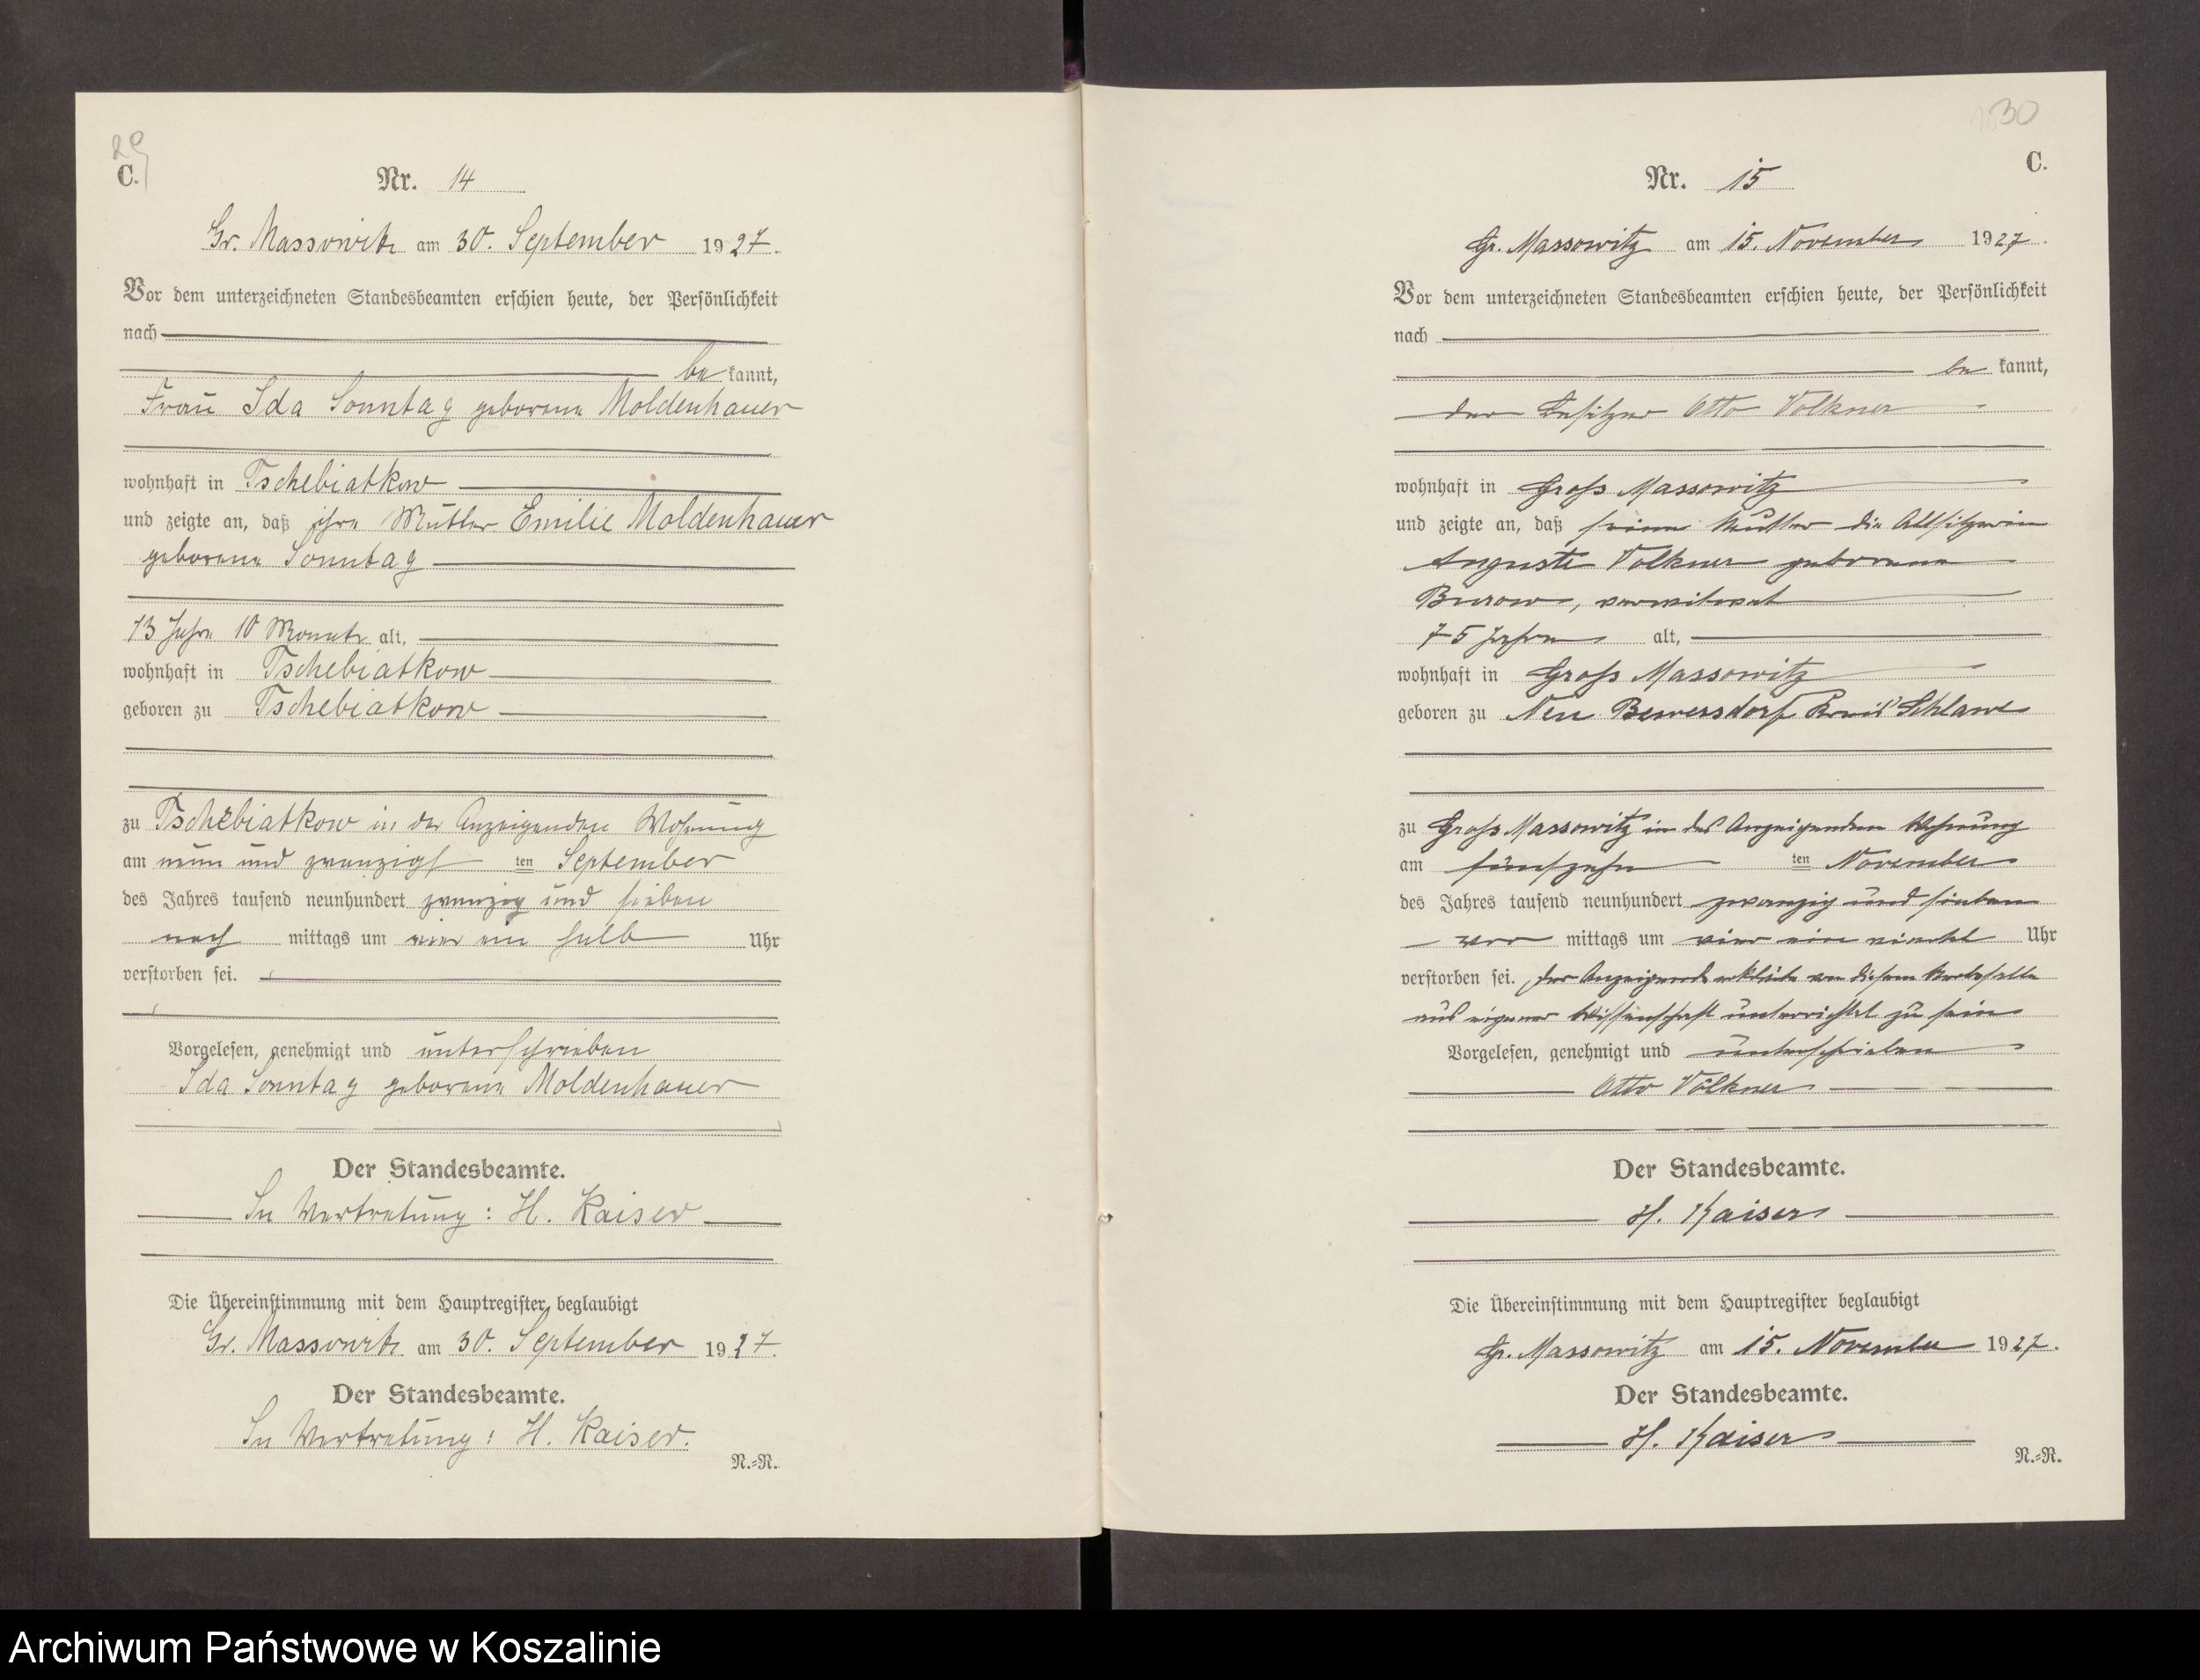 29
C.
Nr. 14
Gr. Massowitz am 30. September 1927.
Vor dem unterzeichneten Standesbeamten erschien heute, der Persönlichkeit
nach
be kannt,
Frau Ida Sonntag geborene Moldenhauer
wohnhaft in Tschebiatkow
und zeigte an, daß ihre Mutter Emilie Moldenhauer
geborene Sonntag
73 Jahre 10 Monate alt,
wohnhaft in Tschebiatkow
geboren zu Tschebiatkow
zu Tschebiatkow in der Anzeigenden Wohnung
am neun und zwanzigst ten September
des Jahres tausend neunhundert zwanzig und sieben
nach mittags um vier ein halb Uhr
verstorben sei.
Vorgelesen, genehmigt und unterschrieben
Ida Sonntag geborene Moldenhauer
Der Standesbeamte.
In Vertretung: H. Kaiser
Die Übereinstimmung mit dem Hauptregister beglaubigt
Gr. Massowitz am 30. September 1927.
Der Standesbeamte.
In Vertretung: H. Kaiser.
N.=R.
30
C.
Nr. 15
Gr. Massowitz am 15. November 1927.
Vor dem unterzeichneten Standesbeamten erschien heute, der Persönlichkeit
nach
be kannt,
der Besitzer Otto Volkner
wohnhaft in Groß Massowitz
und zeigte an, daß seine Mutter die Altsitzerin
Auguste Volkner geborene
Burow, verwitwet
75 Jahre alt,
wohnhaft in Groß Massowitz
geboren zu Neu Bewersdorf Kreis Schlawe
zu Groß Massowitz in des Anzeigenden Wohnung
am fünfzehn ten November
des Jahres tausend neunhundert zwanzig und sieben
vor mittags um vier ein viertel Uhr
verstorben sei. Der Anzeigende erklärte von diesem Sterbefalle
aus eigener Wissenschaft unterrichtet zu sein
Vorgelesen, genehmigt und unterschrieben
Otto Völkner
Der Standesbeamte.
H. Kaiser
Die Übereinstimmung mit dem Hauptregister beglaubigt
Gr. Massowitz am 15. November 1927.
Der Standesbeamte.
H. Kaiser
N.=R.
Archiwum Państwowe w Koszalinie